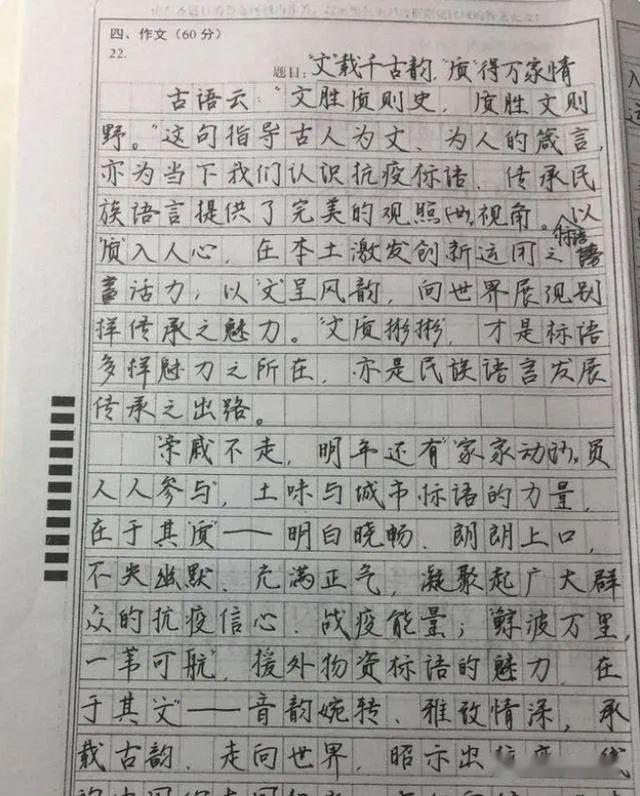 四、作文（60分）
22.
题目："文"载千古韵，"质"得万家情
古语云："文胜质则史，质胜文则
野。"这句指导古人为文、为人的箴言，
亦为当下我们认识抗疫标语、传承民
族语言提供了完美的观照视角。以
"质"入人心，在本土激发创新运用之标语
活力；以"文"呈风韵，向世界展现别
样传承之魅力。"文质彬彬"，才是标语
多样魅力之所在，亦是民族语言发展
传承之出路。
"亲戚不走，明年还有""家家动员，
人人参与"，土味与城市标语的力量，
在于其"质"——明白晓畅、朗朗上口，
不失幽默、充满正气，凝聚起广大群
众的抗疫信心、战疫能量；"鲸波万里，
一苇可航"，援外物资标语的魅力，在
于其"文"——音韵婉转、雅致情深，承
载古韵、走向世界，昭示出